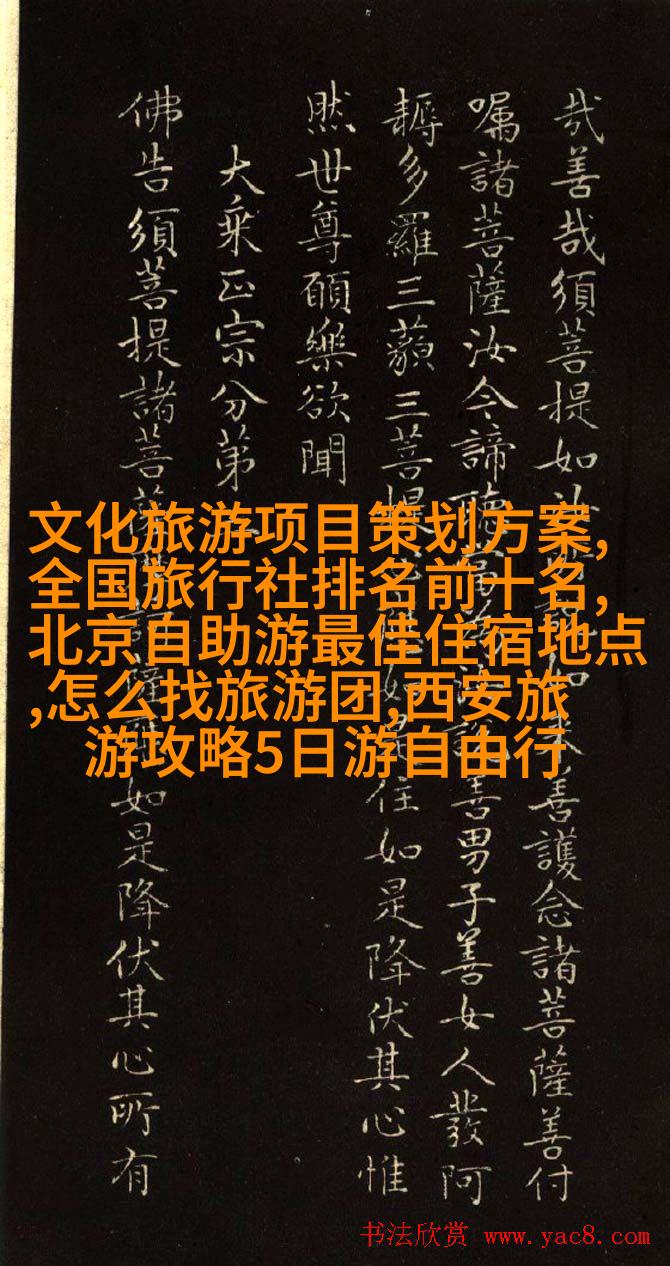 哉善哉須菩提如汝說如来善護念諸菩薩善付
囑諸菩薩汝今諦聽說善男子善女人發阿
耨多羅三藐三菩提如是住如是降伏其心惟
然世尊願樂欲聞
大乘正宗分第
佛告須菩提諸菩薩如是降伏其心所有
文化旅游项目策划方案,
全国旅行社排名前十名,
北京自助游最佳住宿地点
,怎么找旅游团,西安旅
游攻略5日游自由行
书法欣赏 www.yac8.com